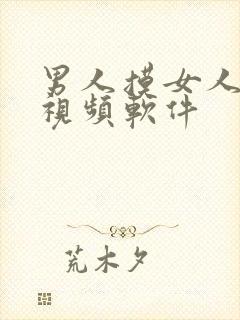 男人摸女人
視頻軟件
荒木夕